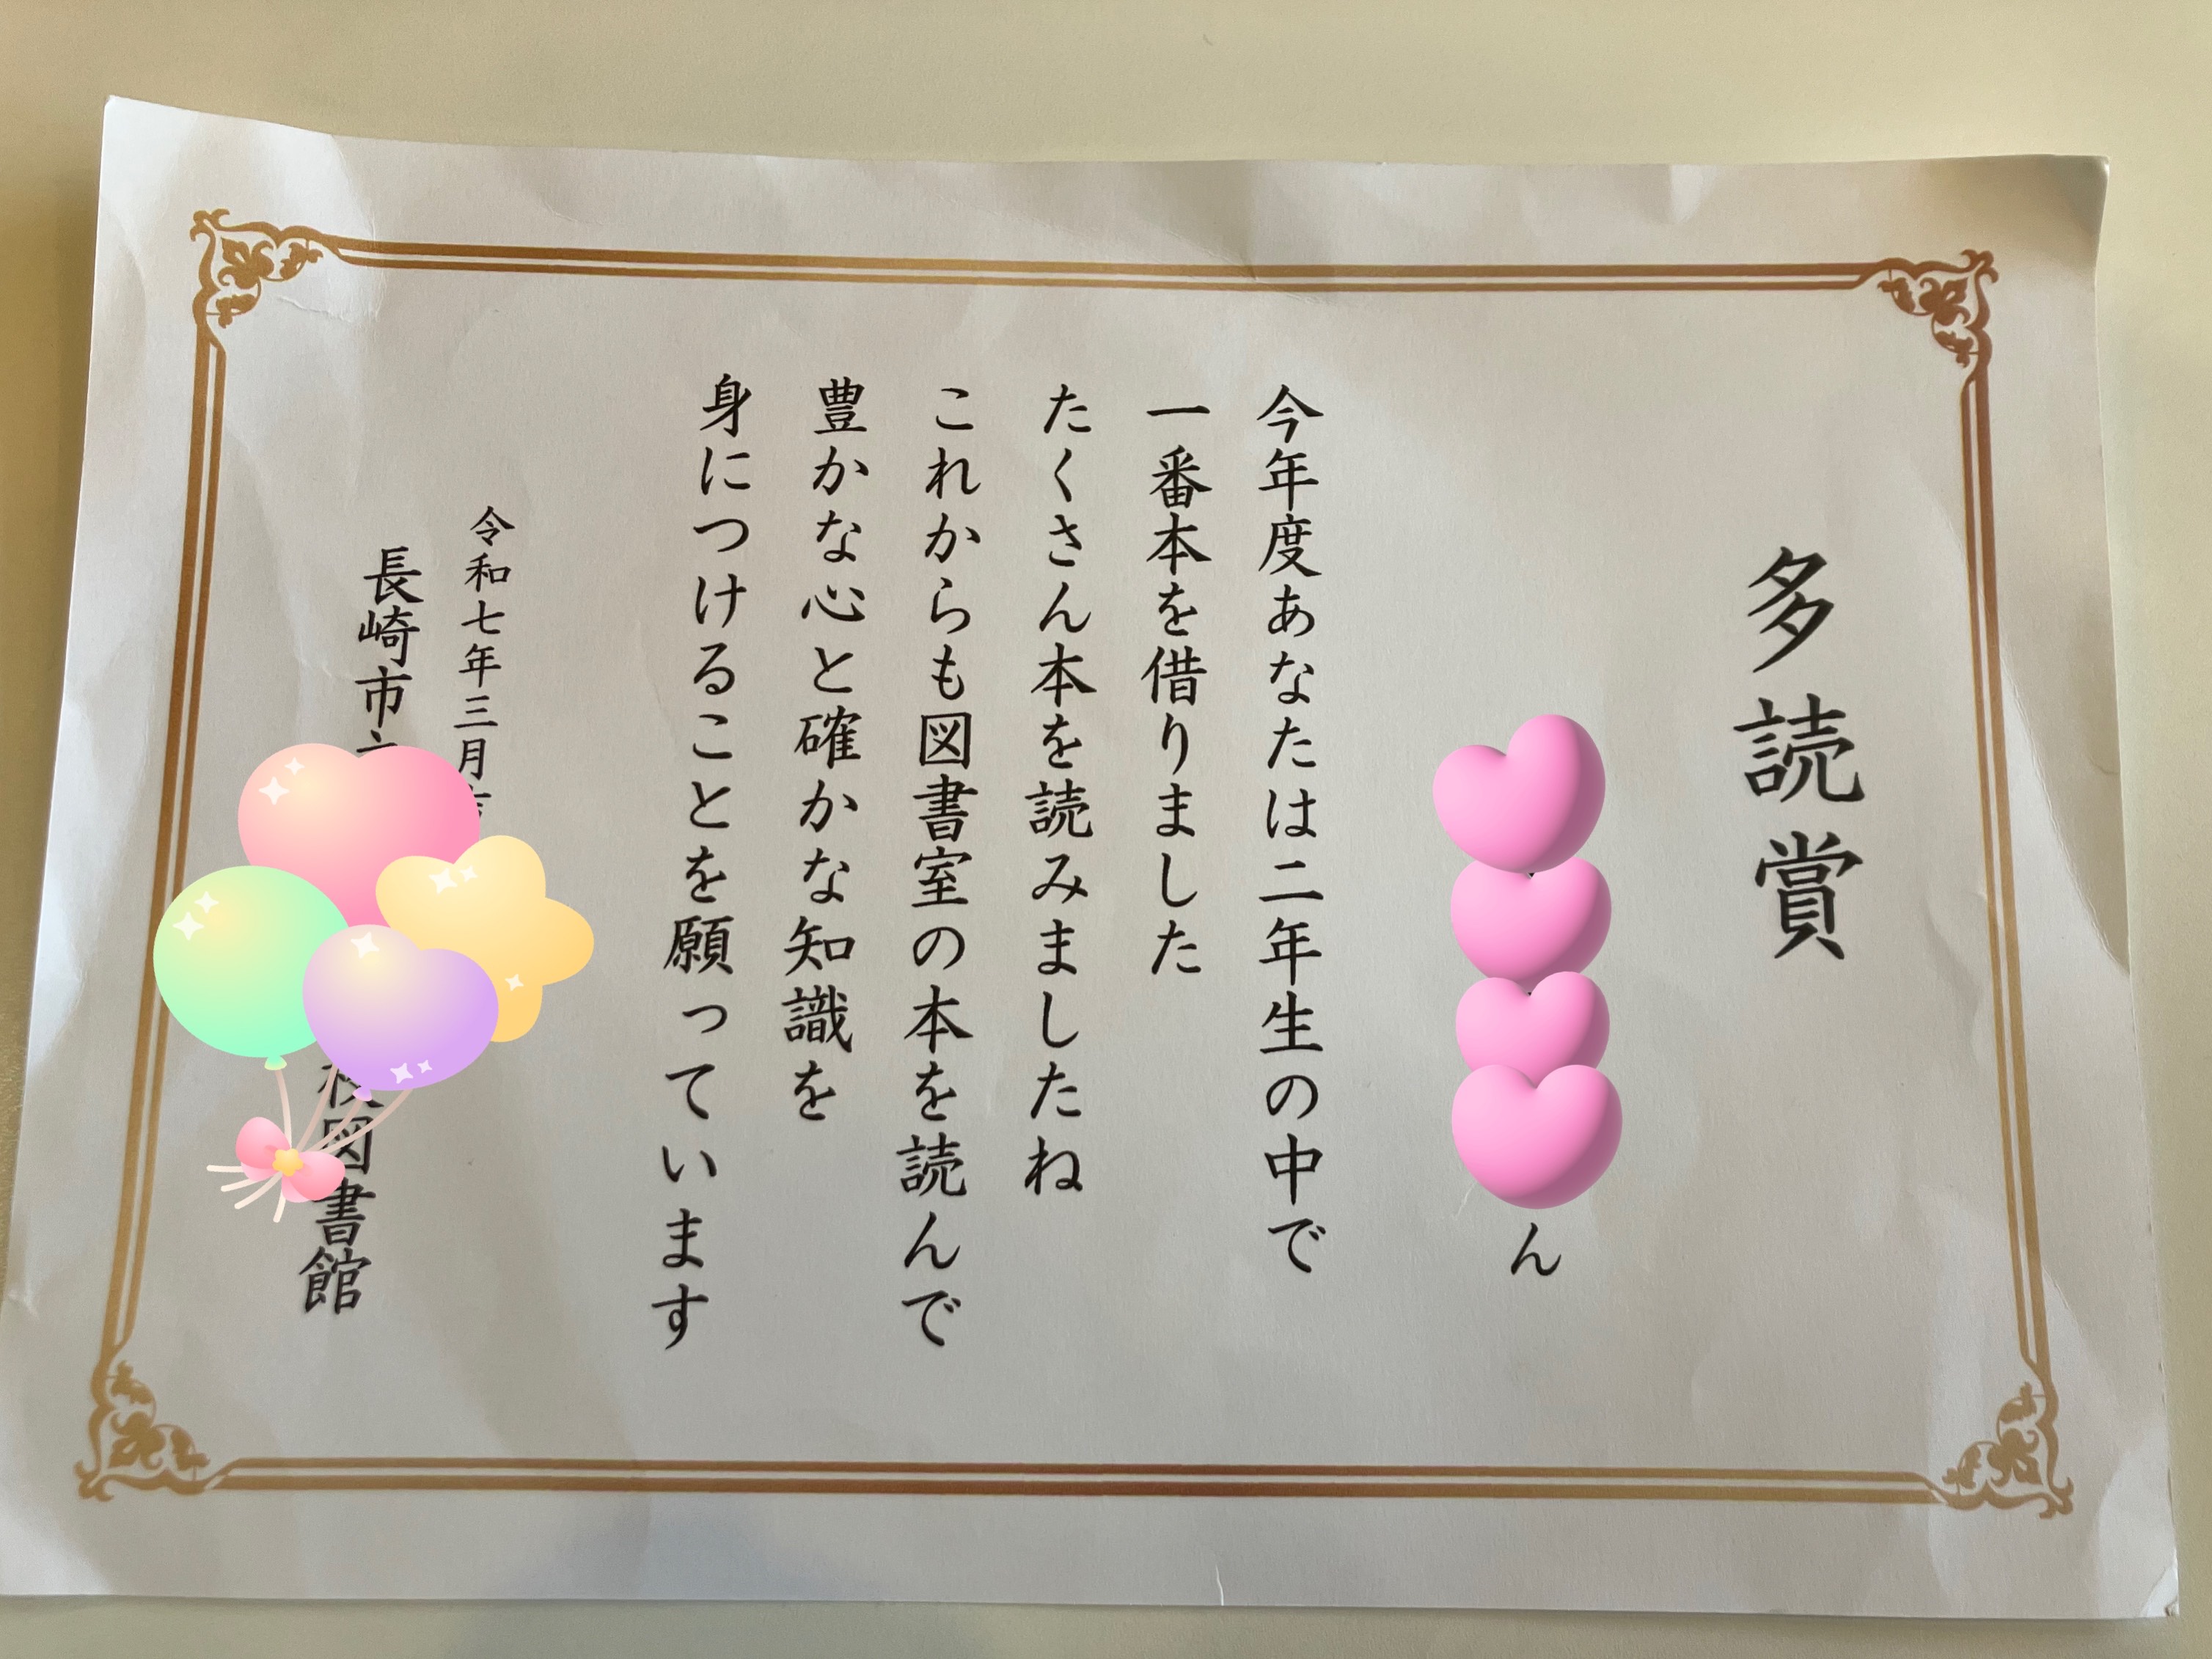 多読賞
ん
今年度あなたは二年生の中で
一番本を借りました
たくさん本を読みましたね
これからも図書室の本を読んで
豊かな心と確かな知識を
身につけることを願っています
令和七年三月
長崎市
図書館